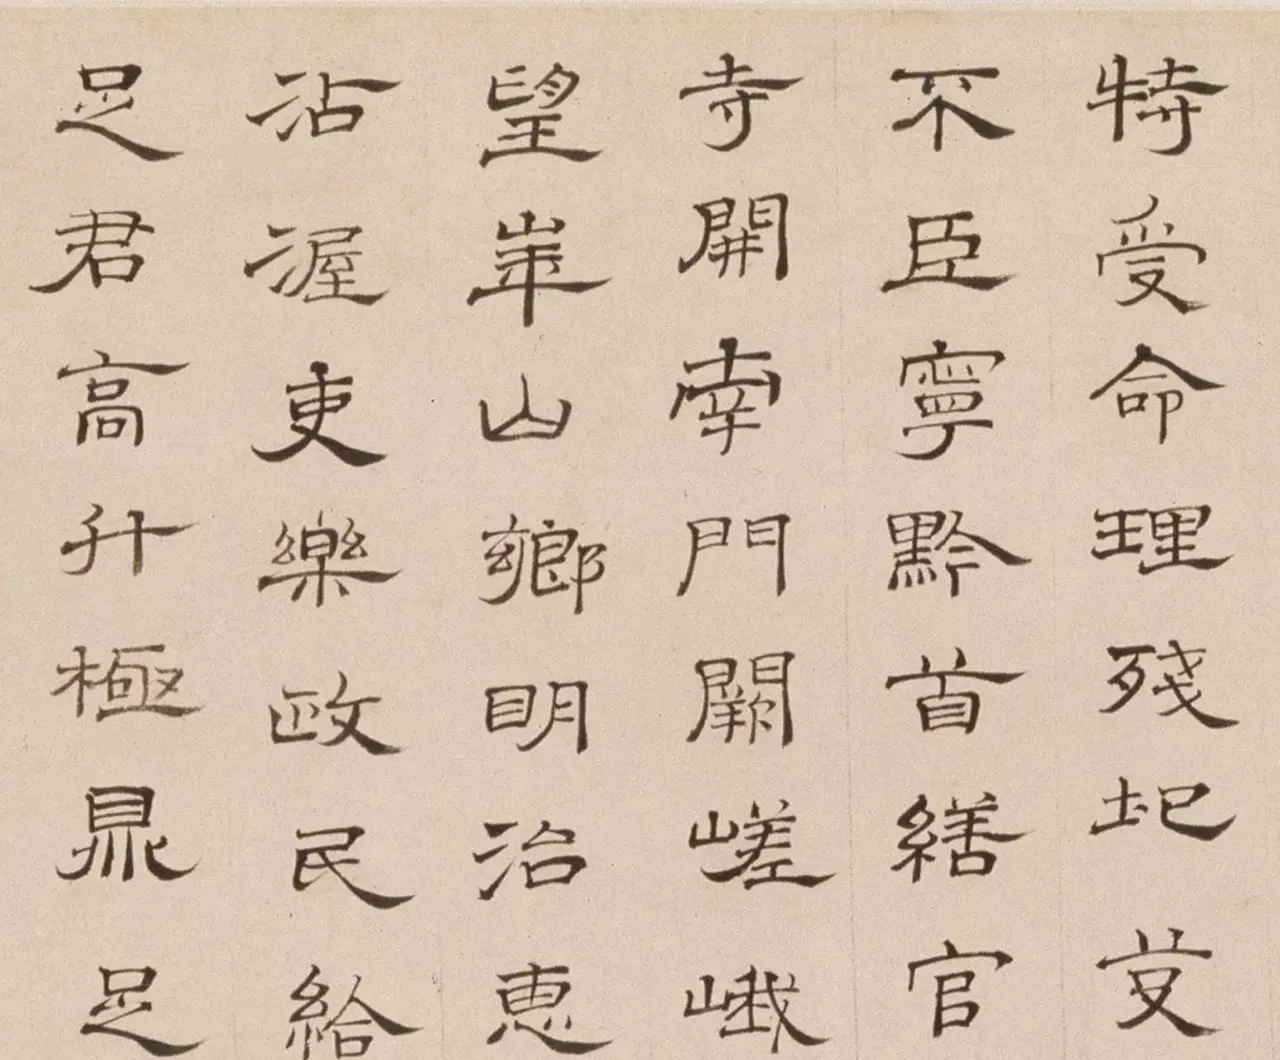 特受命理殘圯芟
不臣寧黔首繕官
寺開南門闕嵯峨
望崋山鄉明治恵
沾渥吏樂政民給
足君高升極鼎足